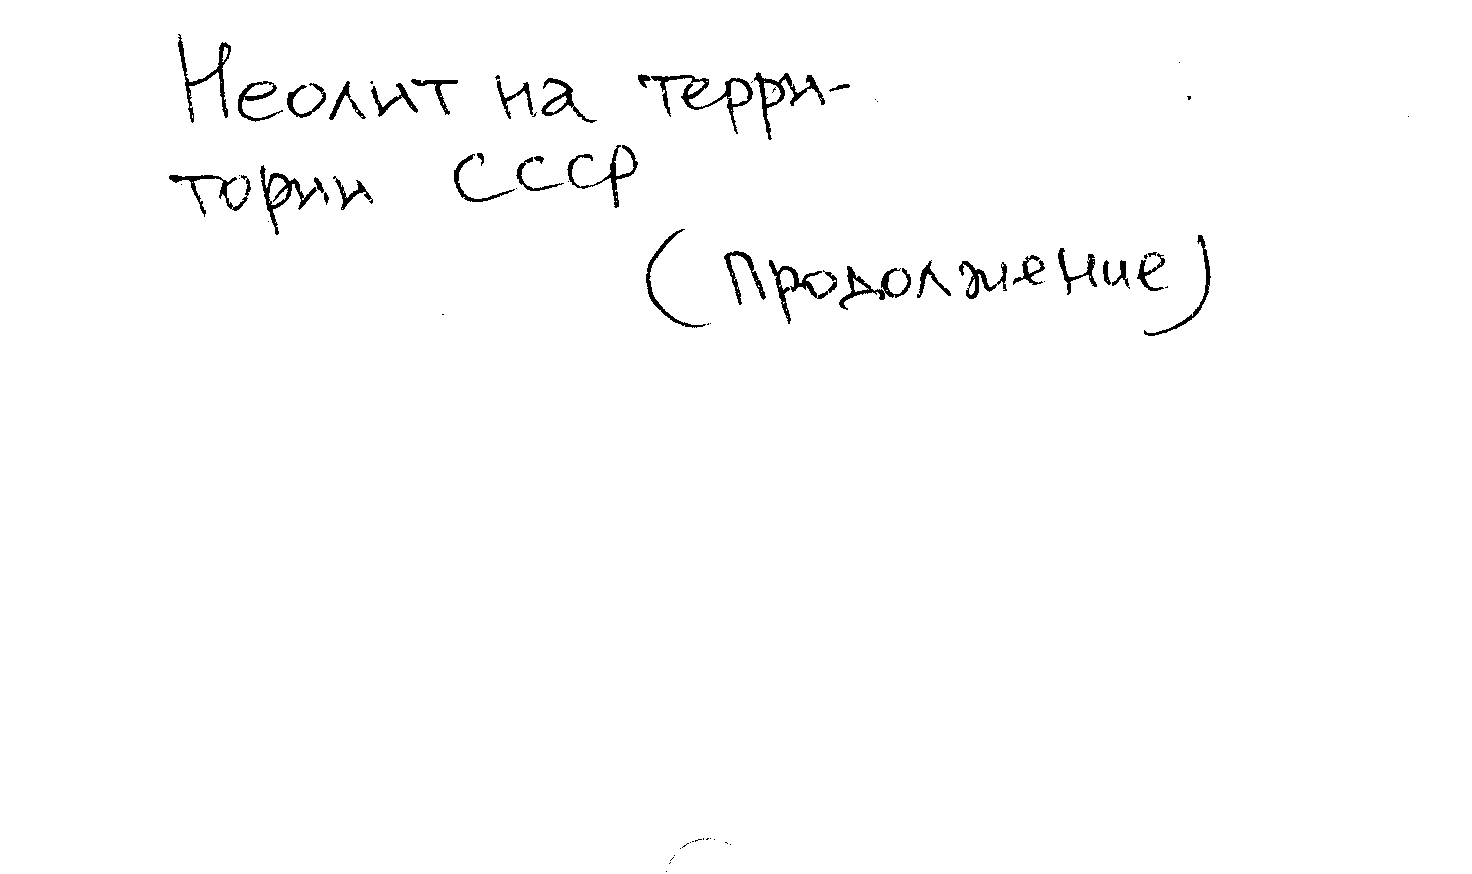 Неолит на терри-
тории СССР
(продолжение)